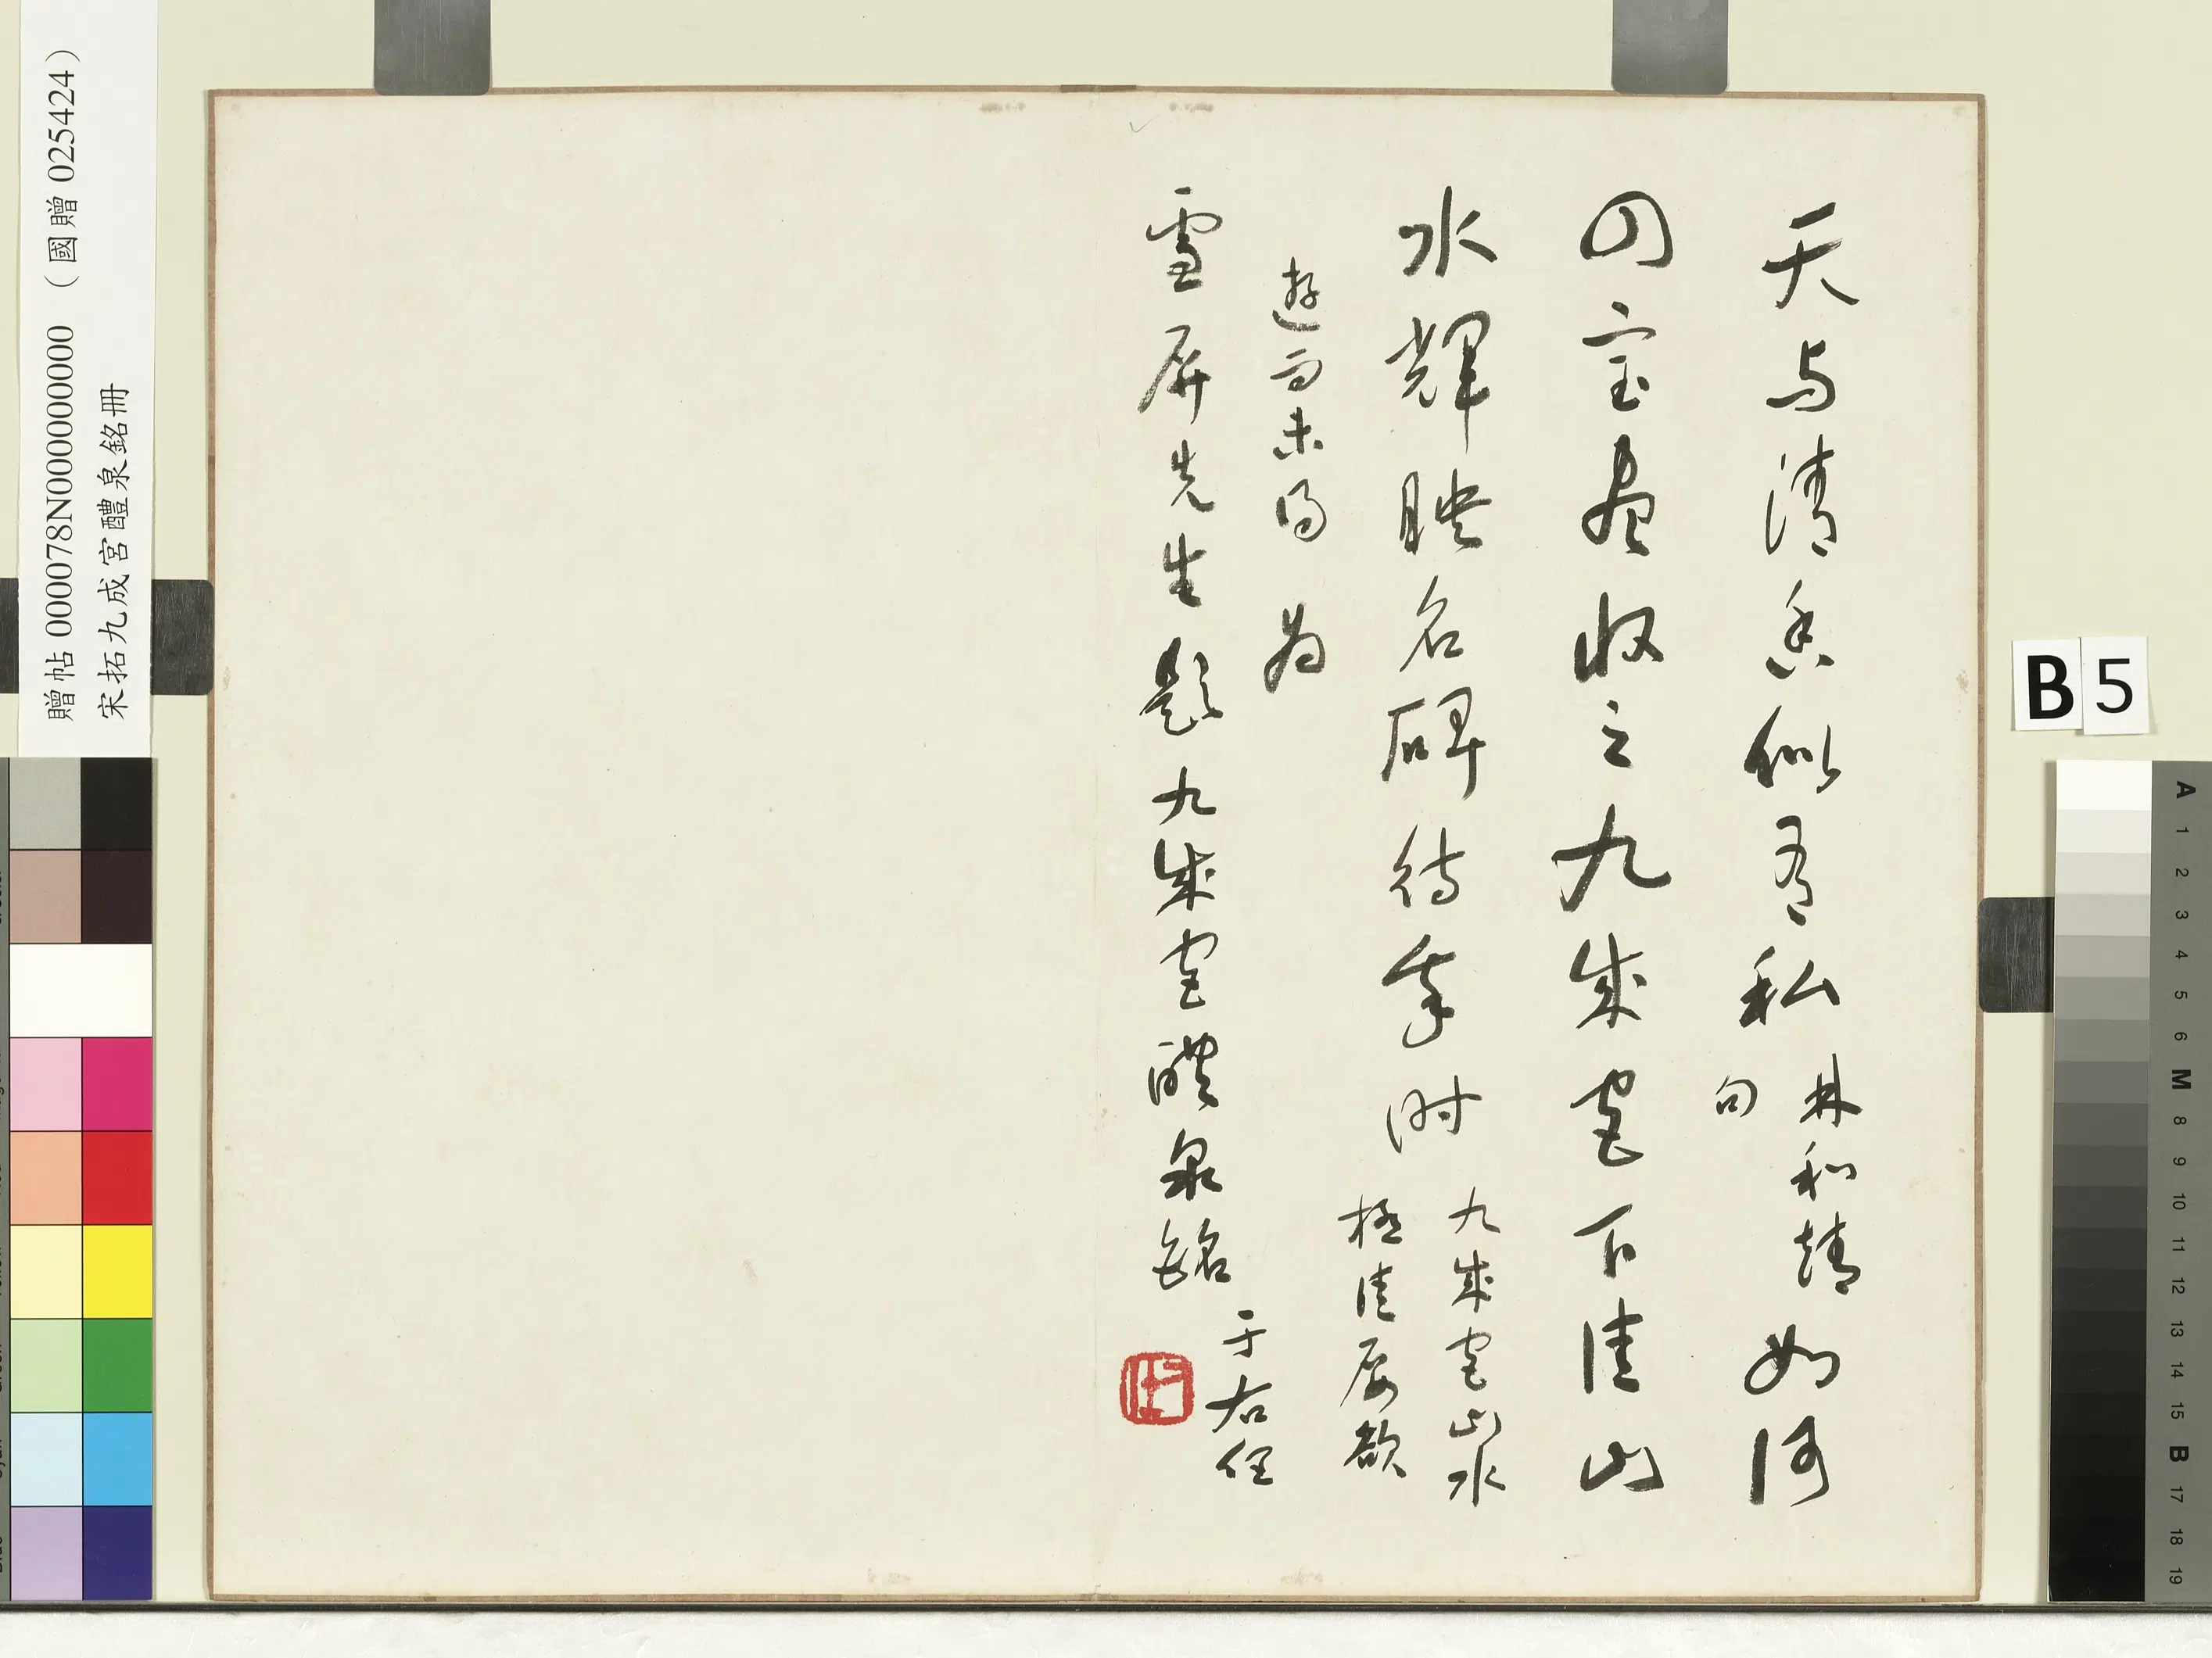 贈帖 000078N000000000 （國贈 025424）
宋拓九成宮醴泉銘冊
天与清香似有私 林和靖
句 如何
四宝盡收之九成宫下佳山
水輝映名碑待幸时 九成宫山水
極佳屡欲
遊而未得 为
雪屏先生題九成宫醴泉銘
于右任
B 5
A 1 2 3 4 5 6 M 8 9 10 11 12 13 14 15 B 17 18 19